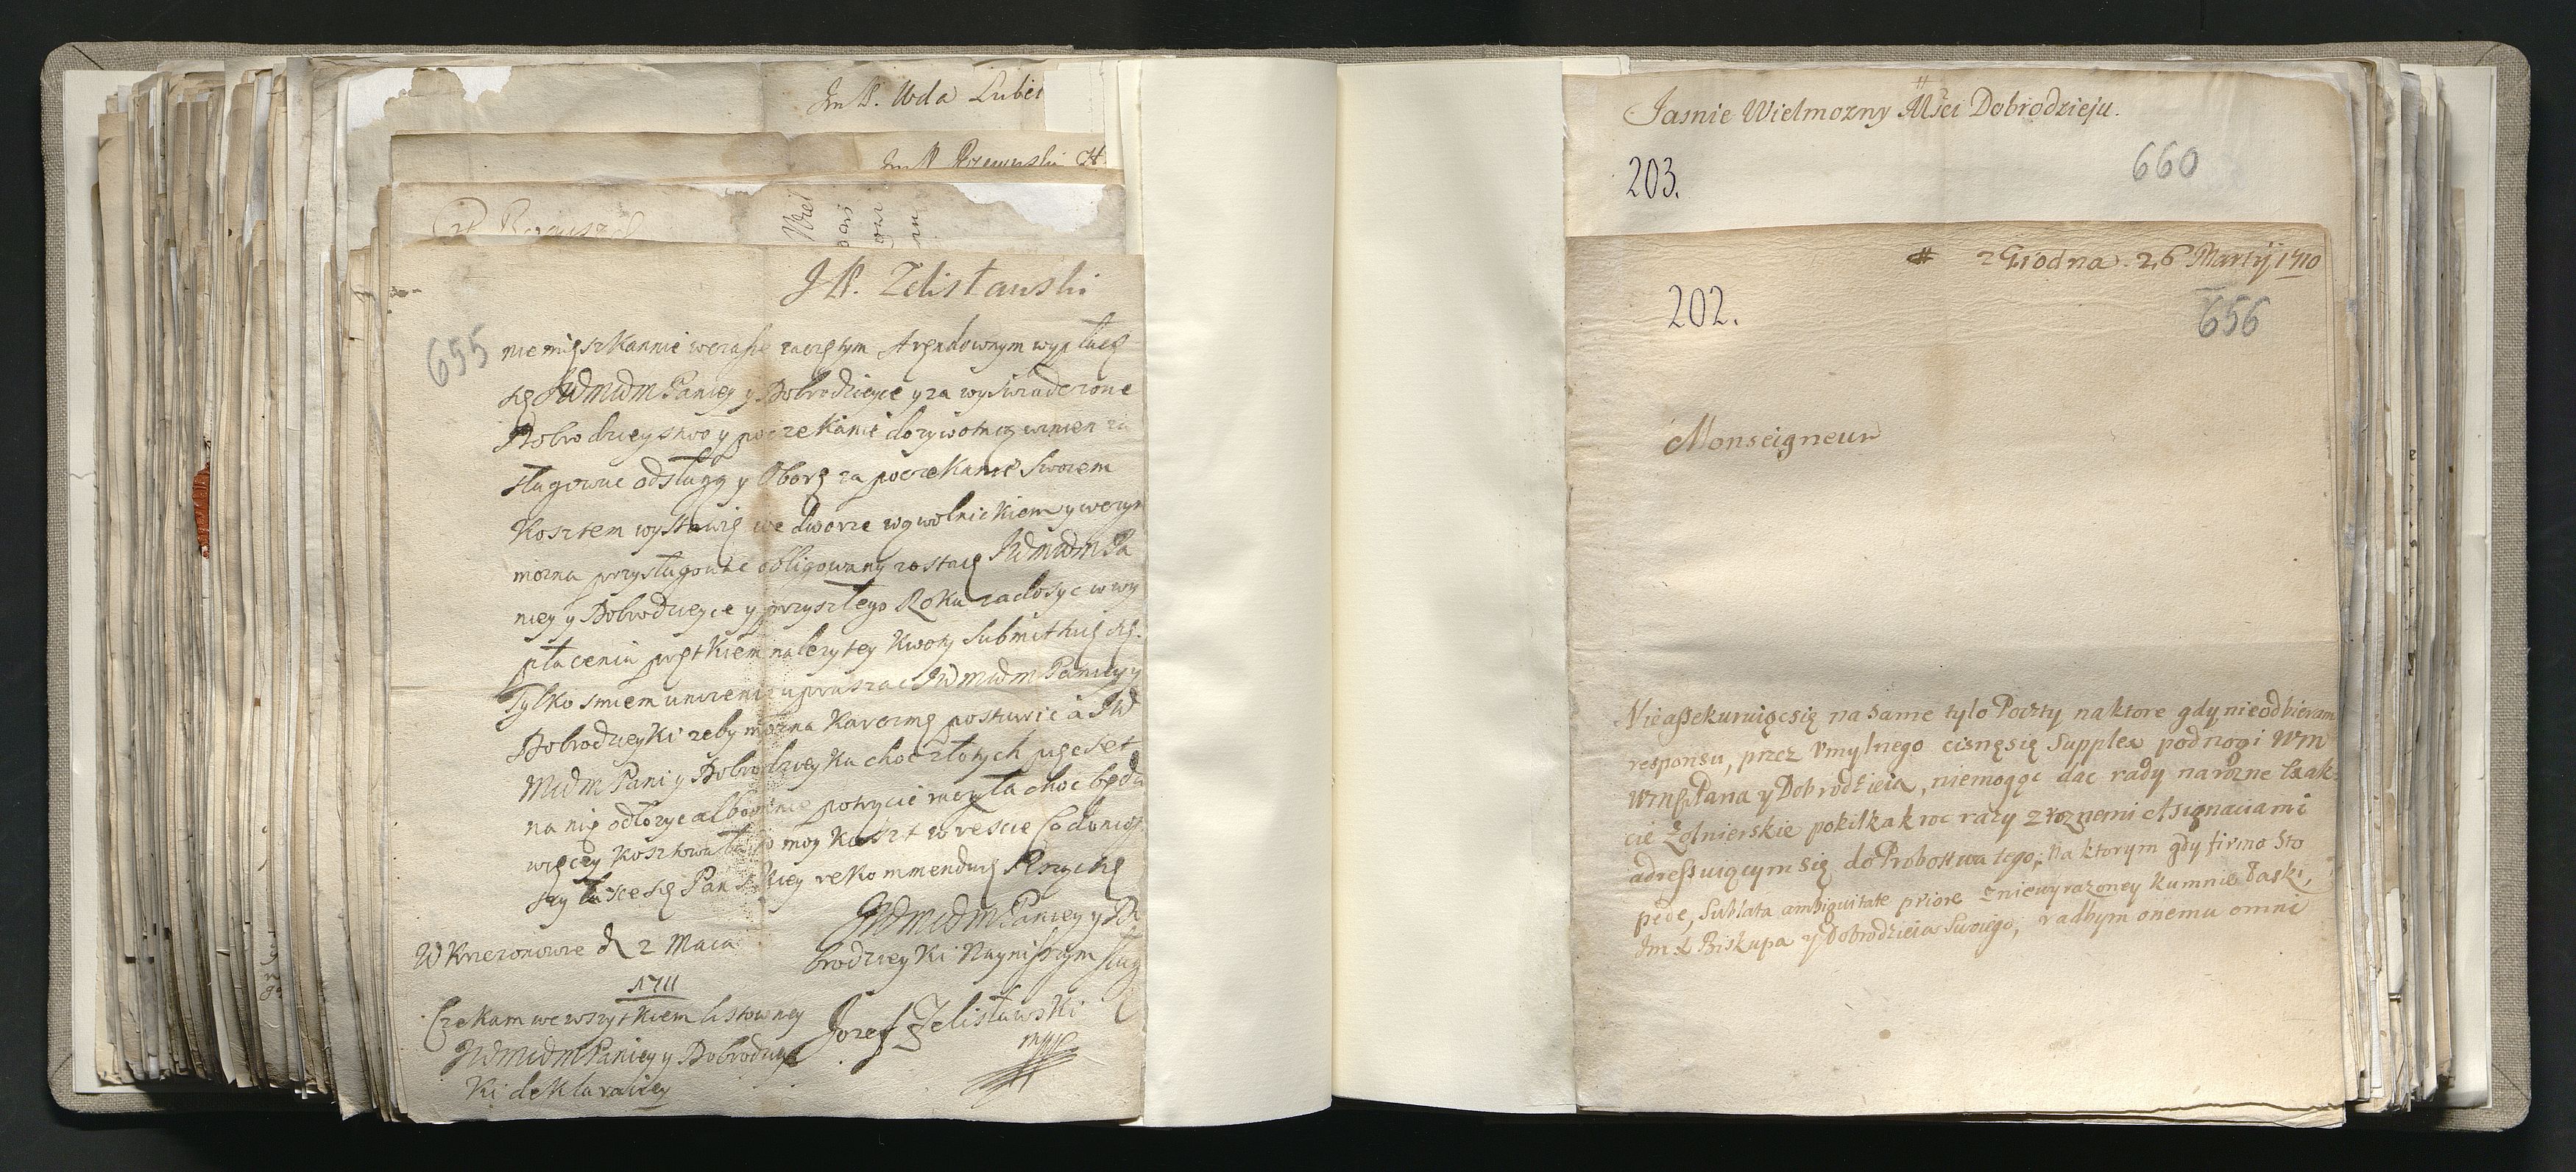 Im P. Wda Lubel
Im P. Rzewuski H
Wiel
J P. Zelisławski
655
niemięszkannie wczasie zaczętym Arendownym wypłacę
sę JWMWM Paniey y Dobrodzieyce y za wyświadczone
Dobrodzieystwo y poczekanie dozywotnią winien za
sługowac odsługą y Oborę za poczekanie Swoiem
Kosztem wystawię we dworze wgwolnickiem y wczym
mozna przysługowac obligowany zostaię JWMWM Pa
niey y Dobrodzieyce y przyszłego Roku zadosyc wwy
płaceniu prętkiem nalezytey Kwoty Submittuię się.
Tylko smiem unizenie upraszac JWMWM Paniey y
Dobrodzieyki zeby mozna Karczmę postawic a JW
MWM Pani y Dobrodzieyka choc złotych pięcset
na nię odłozyc albo mnie potrącic raczyła choc będzie
więcey Kosztowała to moy Koszt wreście Co doniosszy
łasce sę Panskiey rekommenduię Piszę się
JWMWM Paniey y Do
brodzieyki Nayniszszym sługą
WKniezonowie d 2 Maia
1711
Jozef Zelisławski
mpp
Czekam we wszytkiem listowney
JWMWM Paniey y Dobrodziey
Ki deklaraciey
Jasnie Wielmozny Mści Dobrodzieju.
203.
660
z Grodna. 26 Martij 1710
202.
656
Monseigneur
Nieassekuruiącsię na same tylo Poczty naktore gdy nieodbieram
responsu, przez Vmylnego cisnęsię Supplex pod nogi WM
WMPana y Dobrodzieia, niemogąc dac rady narozne trak
cie Zołnierskie pokilkakroc razy z roznemi Assignaciami
adressuiącym się do Probostwa tego, na ktorym gdy firmo Sto
pede, Sublata ambiguitate priore zniewyrazoney kumnie łaski,
Im X Biskupa y Dobrodzieia Swoiego, radbym onemu omne